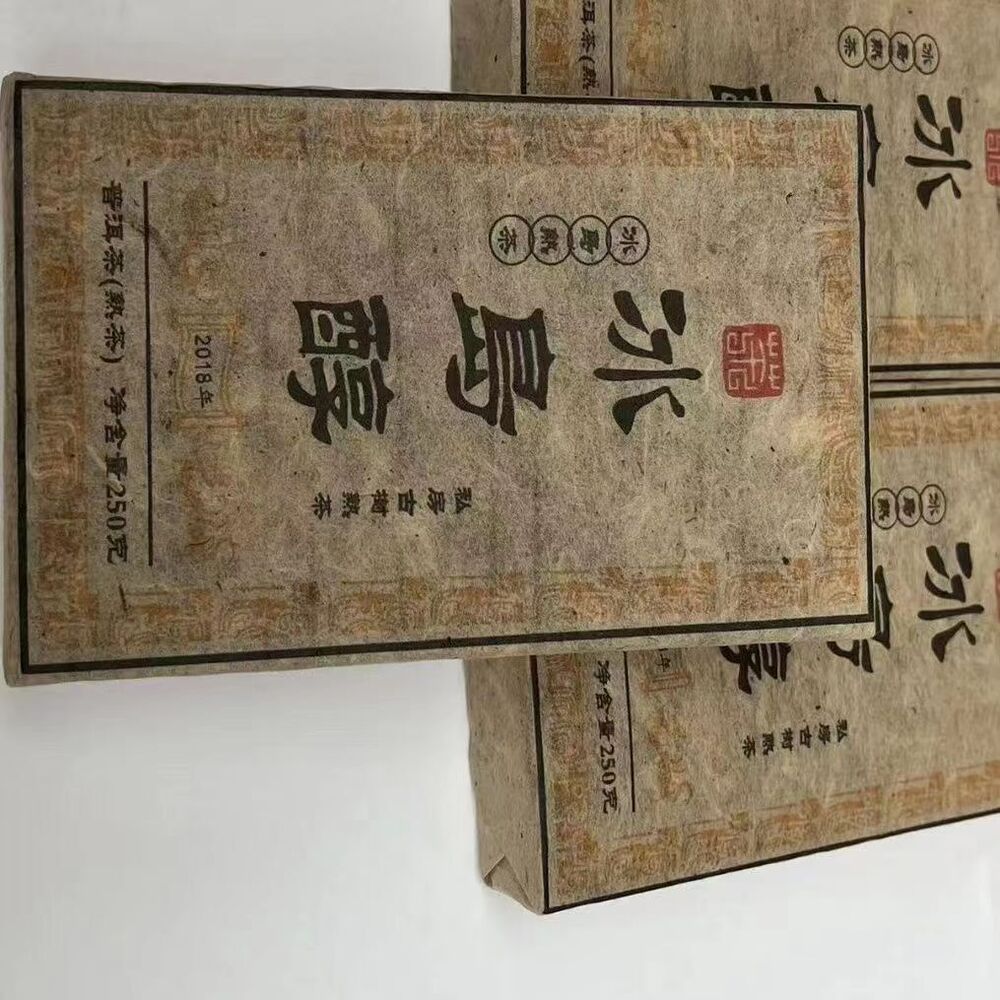 冰島熟茶
冰島醇
私房古樹熟茶
2018年
普洱茶(熟茶) 净含量250克
冰島熟茶
冰
洱茶(熟
冰島熟
冰
醇
私房古樹熟茶
年
净含量250克